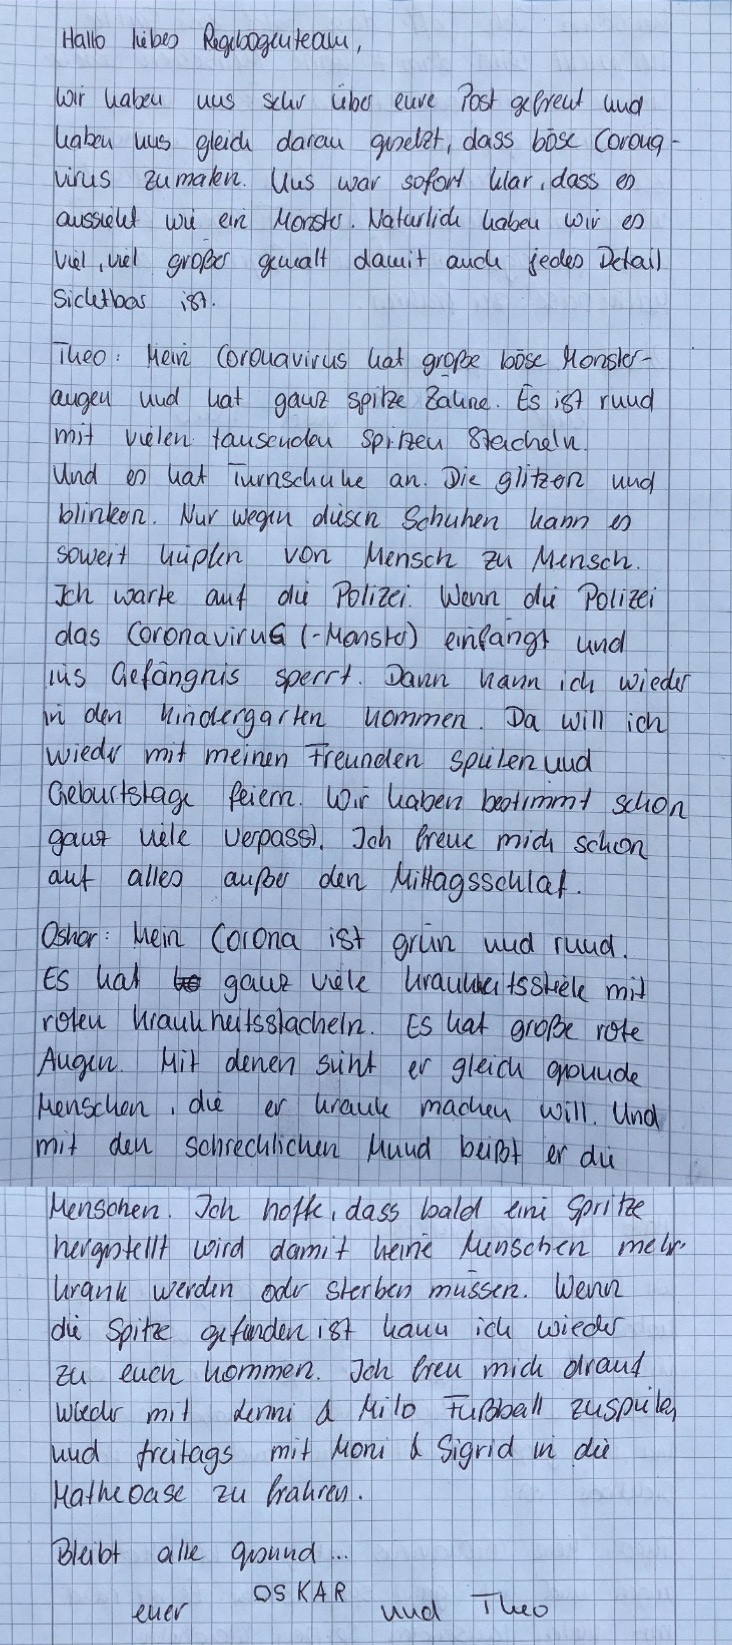 Hallo liebes Regebogenteam,
wir haben uns sehr über eure Post gefreut und
haben uns gleich daran gesetzt, dass böse Corona-
virus zumalen. Uns war sofort klar, dass es
aussieht wie ein Monster. Natürlich haben wir es
viel, viel großer gemalt damit auch jedes Detail
Sichtbar ist.
Theo: Mein Coronavirus hat große böse Monster-
augen und hat ganz spitze Zähne. Es ist rund
mit vielen tausenden spitzen Stacheln.
Und es hat Turnschuhe an. Die glitzern und
blinken. Nur wegen diesen Schuhen kann es
soweit hüpfen von Mensch zu Mensch.
Ich warte auf die Polizei. Wenn die Polizei
das Coronavirus (-Monster) einfängt und
ins Gefängnis sperrt. Dann kann ich wieder
in den Kindergarten kommen. Da will ich
wieder mit meinen Freunden spielen und
Geburtstage feiern. Wir haben bestimmt schon
ganz viele verpasst. Ich freue mich schon
auf alles außer den Mittagsschlaf.
Oskar: Mein Corona ist grün und rund.
Es hat ganz viele Krankheitsstiele mit
roten Krankheitsstacheln. Es hat große rote
Augen. Mit denen sieht er gleich gesunde
Menschen, die er krank machen will. Und
mit den schrecklichen Mund beißt er die
Menschen. Ich hoffe, dass bald eine Spritze
hergestellt wird damit keine Menschen mehr
krank werden oder sterben müssen. Wenn
die Spitze gefunden ist kann ich wieder
zu euch kommen. Ich freu mich drauf
wieder mit Lenni & Milo Fußball zuspielen
und freitags mit Moni & Sigrid in die
Matheoase zu frahren.
Bleibt alle gesund...
euer OSKAR und Theo